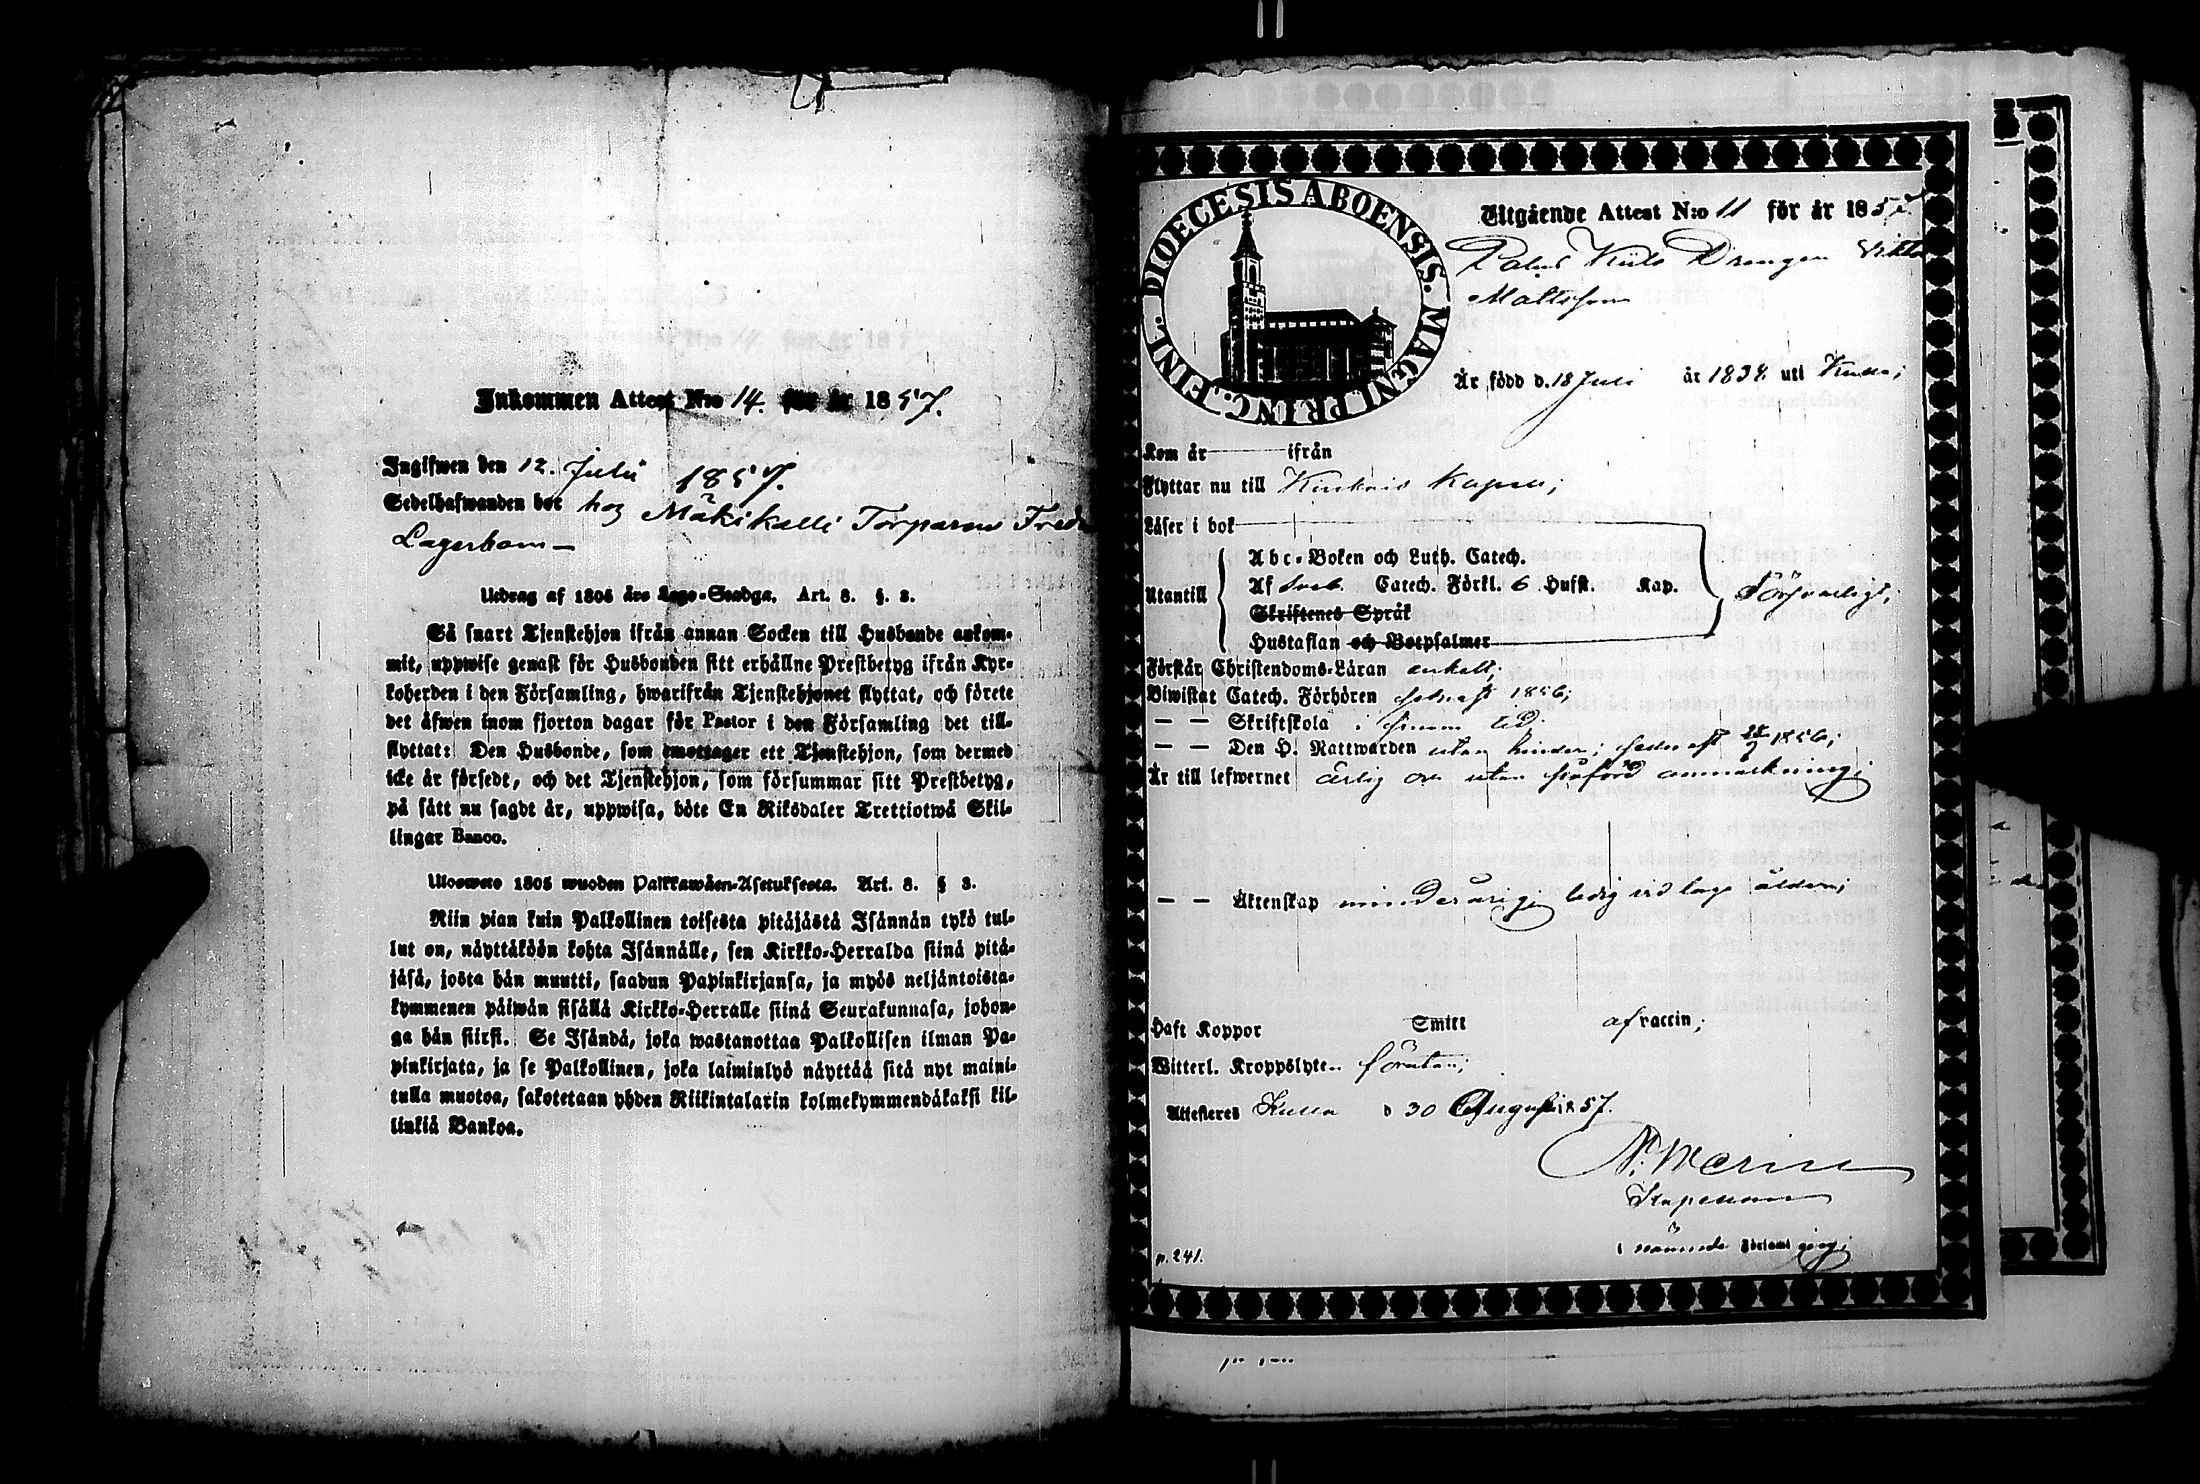 Inkommen Attest N:o 14. för år 1857.
Ingifwen den 12. Julii 1857.
Sedelhafwanden bor hos Mäkikalli Torparen Fredr
Lagerbom
Utdrag af 1805 års Lego-Stadga. Art. 8. §. 3.
Så snart Tjenstehjon ifrån annan Socken till Husbonde ankom-
mit, uppwise genast för Husbonden sitt erhållne Prestbetyg ifrån Kyr-
koherden i den Församling, hwarifrån Tjenstehjonet flyttat, och förete
det äfwen inom fjorton dagar för Pastor i den Församling det till-
flyttat: Den Husbonde, som emottager ett Tjenstehjon, som dermed
icke är försedt, och det Tjenstehjon, som försummar sitt Prestbetyg,
på sätt nu sagdt är, uppwisa, böte En Riksdaler Trettiotwå Skil-
lingar Banco.
Ulosweto 1805 wuoden Palkkawäen-Asetuksesta. Art. 8. § 3.
Niin pian kuin Palkollinen toisesta pitäjästä Isännän tykö tul-
lut on, näyttäköön kohta Isännälle, sen Kirkko-Herralda siinä pitä-
jäsä, josta hän muutti, saadun Papinkirjansa, ja myös neljäntoista-
kymmenen päiwän sisällä Kirkko-Herralle siinä Seurakunnasa, johon-
ga hän siirsi. Se Isändä, joka wastanottaa Palkollisen ilman Pa-
pinkirjata, ja se Palkollinen, joka laiminlyö näyttää sitä nyt maini-
tulla muotoa, sakotetaan yhden Riikintalarin kolmekymmendäkaksi kil-
linkiä Bankoa.
DIOECESIS ABOENSIS. MAGNI PRINC. FINL.
Utgående Attest N:o 11 för år 1857.
Drengen
Mattsson
Är född d. 18 Juli år 1838 uti Kulla;
Kom år ifrån
Flyttar nu till Kapell;
Läser i bok
Abc-Boken och Luth. Catech.
Utantill Af Catech. Förkl. 6 Hufst. Kap. Försvarligt;
Skriftenes Språk
Hustaflan och Botpsalmer
Förstår Christendoms-Läran enkelt;
Biwistat Catech. Förhören sednast 1856;
— — Skriftskola i sinom tid;
— — Den H. Nattwarden utan hinder; sednast 1856;
Är till lefwernet ärlig och utan införd anmärkning;
— — Äktenskap minderårig; ledig vid laga åldern;
Haft Koppor Smitt af vaccin;
Witterl. Kroppslyten förutan;
Attesteres Kulla d 30 Augusti 1857.
Kapellan
i nämnde Församling
p. 241.